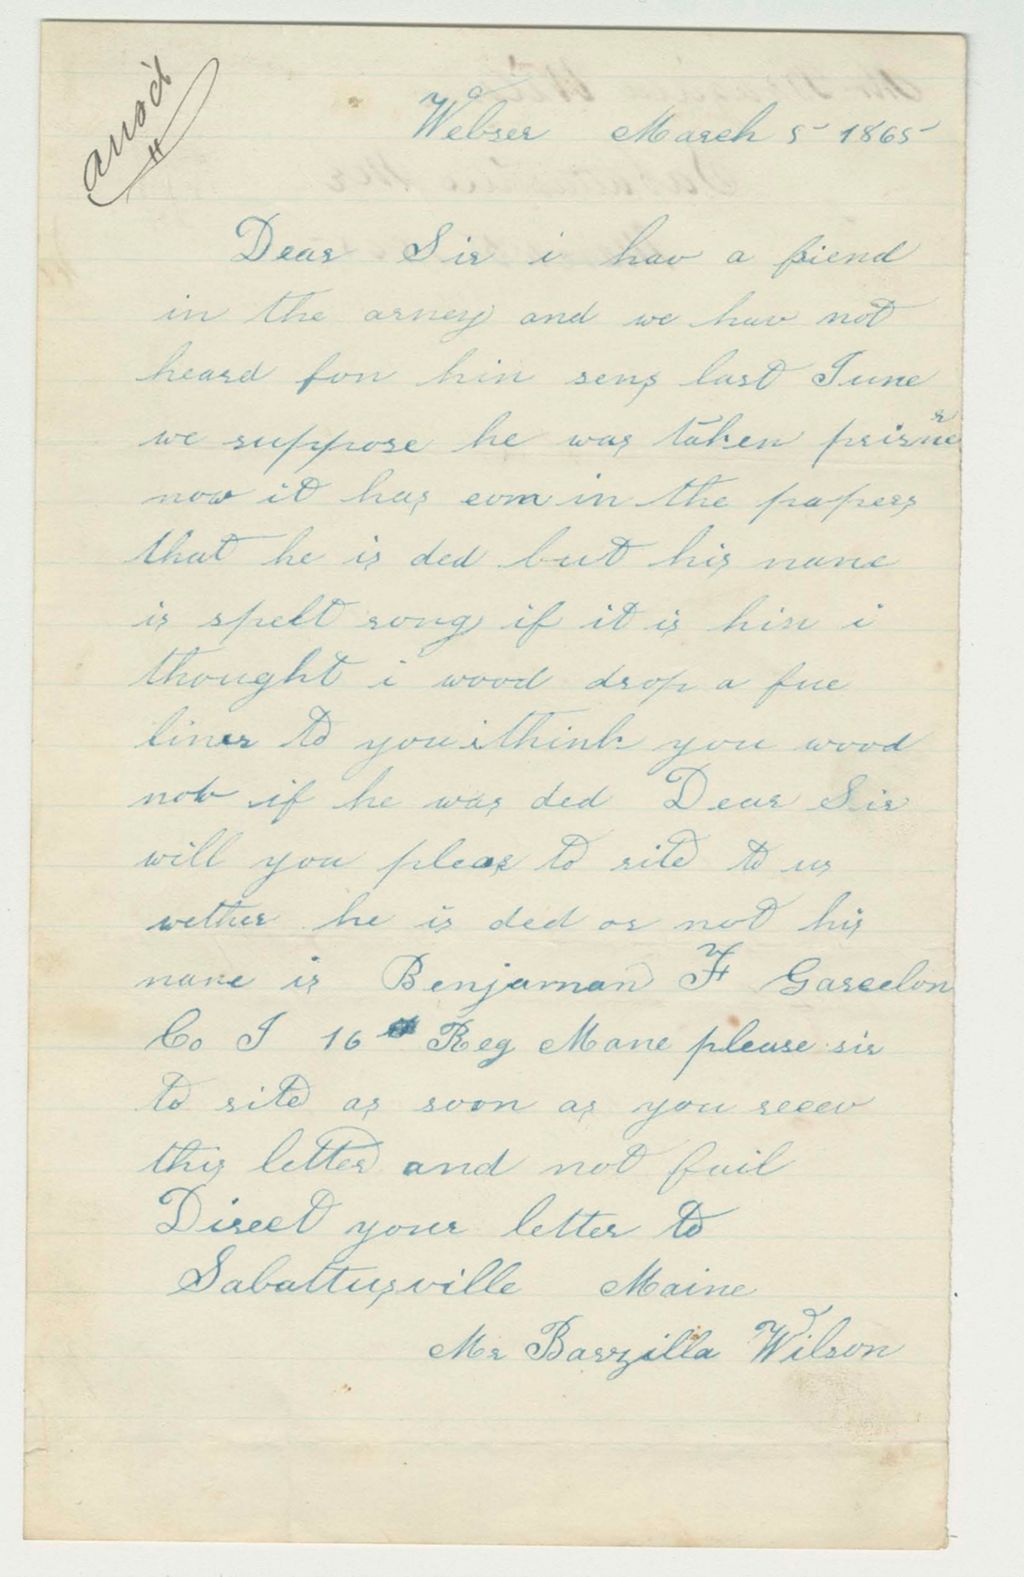 ans'd
Webser March 5 1865
Dear Sir i hav a friend
in the armey and we hav not
heard fon him sens last June
we suppose he was taken prisner
now it has com in the papers
that he is ded but his name
is spelt rong if it is him i
thought i wood drop a fue
lines to you i think you wood
now if he was ded Dear Sir
will you pleas to rite to us
wether he is ded or not his
name is Benjaman F Garcelon
Co I 16 Reg Mane please sir
to rite as soon as you reeev
this letter and not fail
Direct your letter to
Sabattusville Maine
Mr Barzilla Wilson